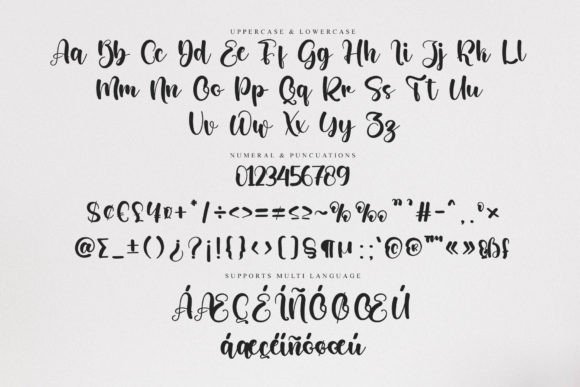 UPPERCASE & LOWERCASE
Aa Bb Cc Dd Ee Ff Gg Hh Ii Jj Kk Ll
Mm Nn Oo Pp Qq Rr Ss Tt Uu
Vv Ww Xx Yy Zz
NUMERAL & PUNCUATIONS
0123456789
$¢€£¥¤+*/÷<>=≠≤≥~%‰"'#-^,.°×
@Σ_±()¿?¡!{}‹›[]§¶µ:;'©®™"«»
SUPPORTS MULTI LANGUAGE
ÁÆÇÉÍÑÓØŒÚ
áæçéíñóøœú